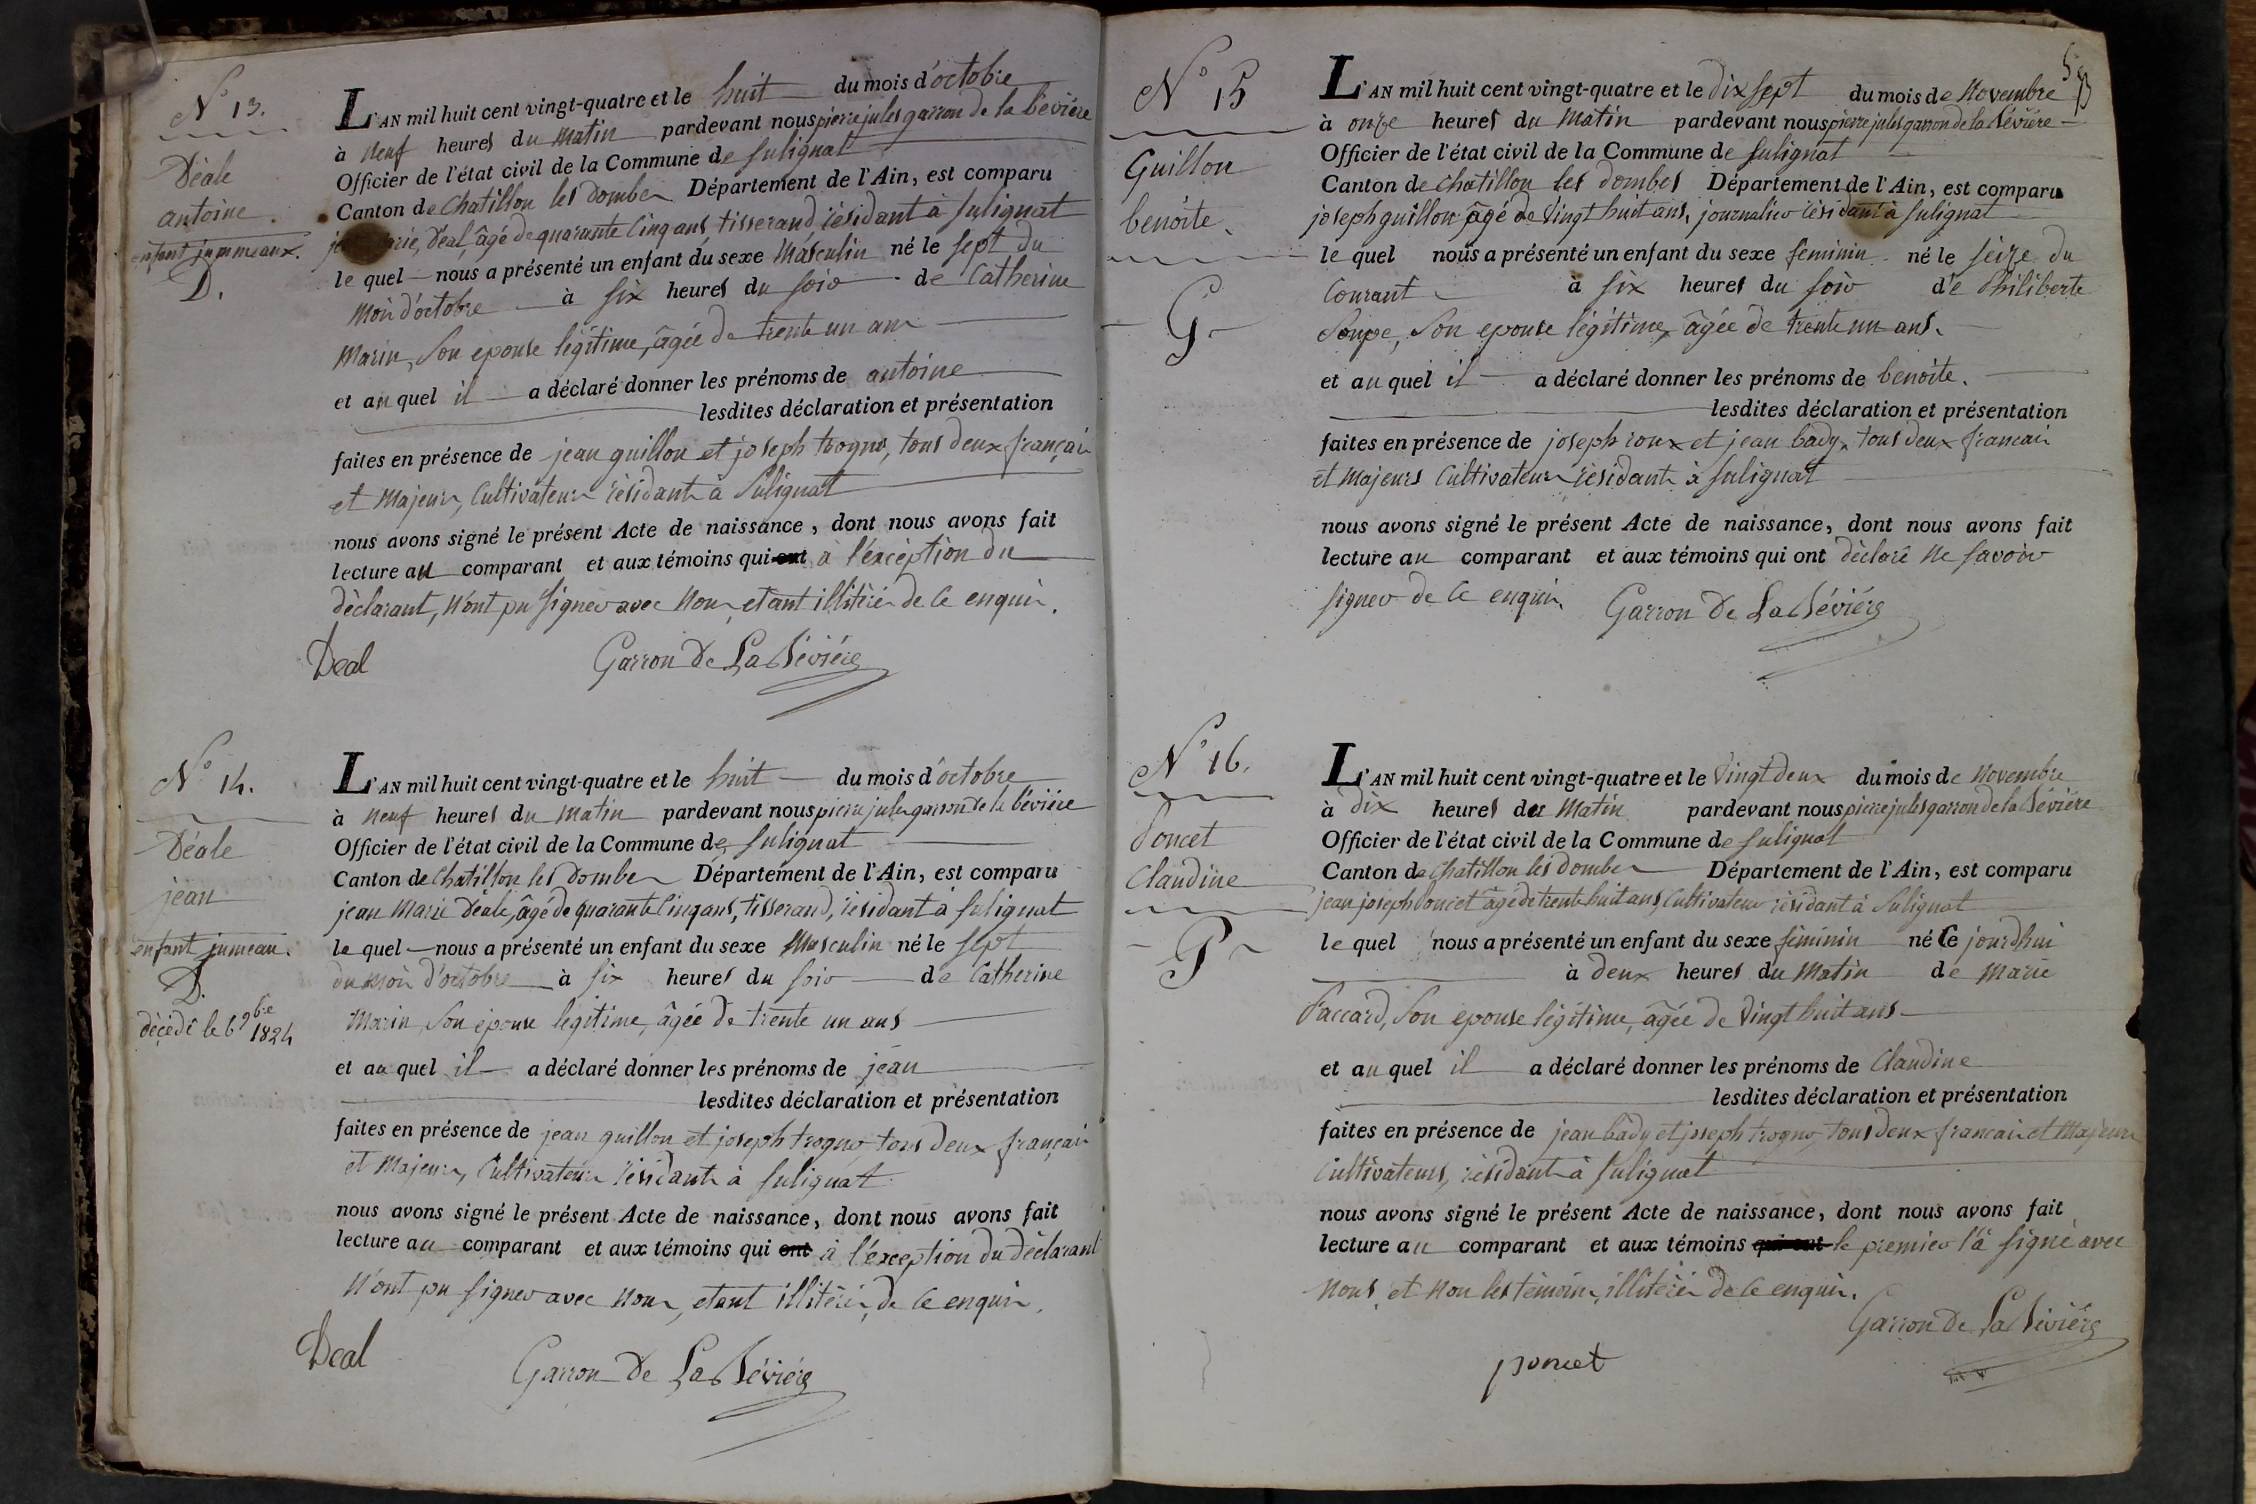 N° 13.
Déale
antoine.
enfant jummeaux.
D.
L'AN mil huit cent vingt-quatre et le huit du mois d'octobre
à neuf heures du matin pardevant nous pierre jules garron de la bévière
Officier de l'état civil de la Commune de Sulignat
Canton de Chatillon les dombes Département de l'Ain, est comparu
Déal, âgé de quarante cinq ans, tisserand, résidant à Sulignat
le quel nous a présenté un enfant du sexe Masculin né le sept du
mois d'octobre à six heures du soir de Catherine
Marin, son epouse légitime, âgée de trente un ans
et au quel il a déclaré donner les prénoms de antoine
lesdites déclaration et présentation
faites en présence de jean guillon et joseph trogno, tous deux français
et Majeurs, Cultivateurs résidants à Sulignat
nous avons signé le présent Acte de naissance, dont nous avons fait
lecture au comparant et aux témoins qui ont à l'éxception du
déclarant, n'ont pu signer avec nous, etant illitérés de ce enquis.
Deal Garron De La Bévière
N° 14.
Déale
jean
enfant jumeau.
D.
décédé le 6 9bre 1824
L'AN mil huit cent vingt-quatre et le huit du mois d'octobre
à neuf heures du matin pardevant nous pierre jules garron de la bévière
Officier de l'état civil de la Commune de Sulignat
Canton de Chatillon les dombes Département de l'Ain, est comparu
jean Marie Déale, âgé de quarante cinq ans, tisserand, résidant à Sulignat
le quel nous a présenté un enfant du sexe Masculin né le sept
du mois d'octobre à six heures du soir de Catherine
Marin, son épouse legitime, âgée de trente un ans
et au quel il a déclaré donner les prénoms de jean
lesdites déclaration et présentation
faites en présence de jean guillon et joseph trogno tous deux français
et Majeurs, Cultivateurs résidants à Sulignat
nous avons signé le présent Acte de naissance, dont nous avons fait
lecture au comparant et aux témoins qui ont à l'éxception du déclarant
n'ont pu signer avec nous, etant illitérés, de ce enquis.
Deal Garron De La Bévière
N° 15
Guillon
benoite.
G
L'AN mil huit cent vingt-quatre et le dix sept du mois de Novembre
à onze heures du Matin pardevant nous pierre jules garron de la Bévière
Officier de l'état civil de la Commune de Sulignat
Canton de Chatillon les dombes Département de l'Ain, est comparu
joseph guillon âgé de vingt huit ans, journalier résidant à Sulignat
le quel nous a présenté un enfant du sexe féminin né le seize du
Courant à six heures du soir de Philiberte
Soupe, Son epouse légitime, âgée de trente un ans.
et au quel il a déclaré donner les prénoms de benoite.
lesdites déclaration et présentation
faites en présence de joseph roux et jean bady, tous deux francais
et Majeurs Cultivateurs résidants à Sulignat
nous avons signé le présent Acte de naissance, dont nous avons fait
lecture au comparant et aux témoins qui ont déclaré ne savoir
signer de ce enquis. Garron De La Bévière
N° 16.
Poncet
Claudine
P
L'AN mil huit cent vingt-quatre et le vingt deux du mois de Novembre
à dix heures du Matin pardevant nous pierre jules garron de la Bévière
Officier de l'état civil de la Commune de Sulignat
Canton de Chatillon les dombes Département de l'Ain, est comparu
jean joseph Poncet âgé de trente huit ans, Cultivateur résidant à Sulignat
le quel nous a présenté un enfant du sexe féminin né Ce jourdhui
à deux heures du Matin de Marie
Paccard, Son epouse légitime, âgée de vingt huit ans
et au quel il a déclaré donner les prénoms de Claudine
lesdites déclaration et présentation
faites en présence de jean bâdy et joseph trogno, tous deux francais et Majeurs
Cultivateurs, résidants à Sulignat
nous avons signé le présent Acte de naissance, dont nous avons fait
lecture au comparant et aux témoins qui ont le premier l'à signé avec
nous, et non les témoins, illitérés de ce enquis.
Garron De La Bévière
poncet